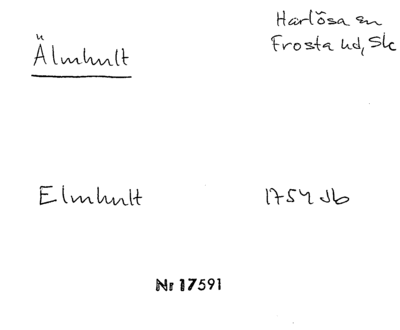 Harlösa sn
Älmhult
Frosta hd, Sk
Elmhult
1754 Jb
Nr 17591